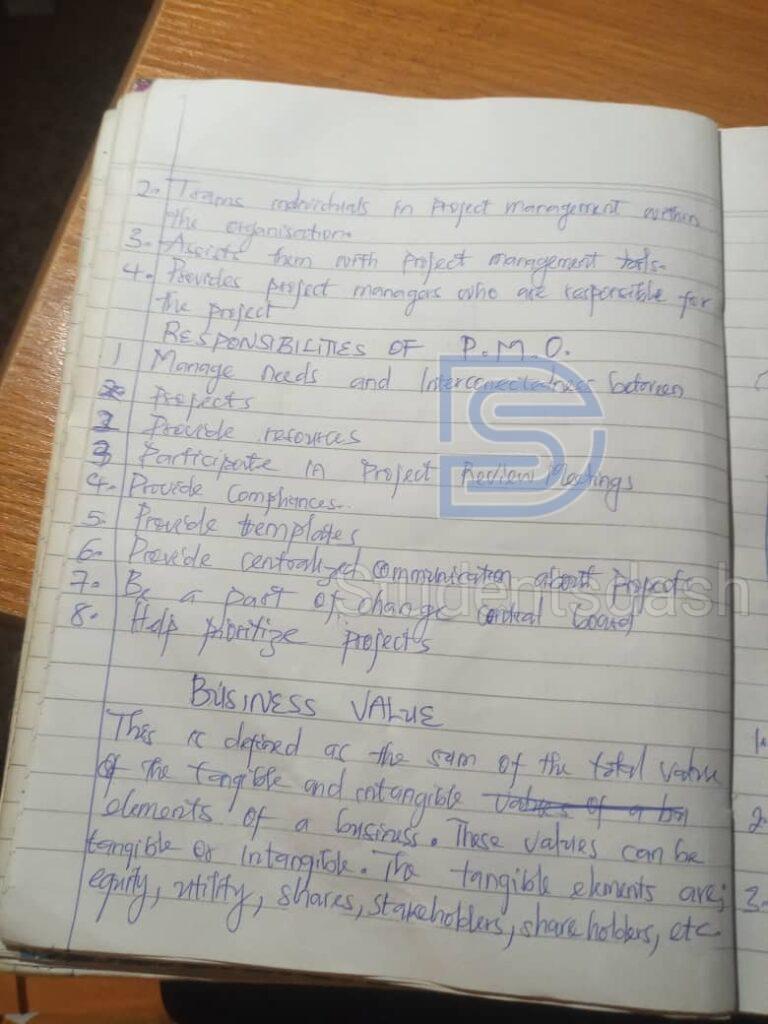 2. Trains individuals in project management within
the organisation.
3. Assists them with project management tools.
4. Provides project managers who are responsible for
the project
RESPONSIBILITIES OF P.M.O.
1 Manage needs and Interconnectedness between
projects
2 Provide resources
3 Participate in Project Review Meetings
4. Provide Compliances.
5. Provide templates
6. Provide centralized communication about projects
7. Be a part of change control board
8. Help prioritize projects
BUSINESS VALUE
This is defined as the sum of the total value
of the tangible and intangible values of a
elements of a business. These values can be
tangible or intangible. The tangible elements are;
equity, utility, shares, stakeholders, share holders, etc.
Studentsdash
1.
2.
3.